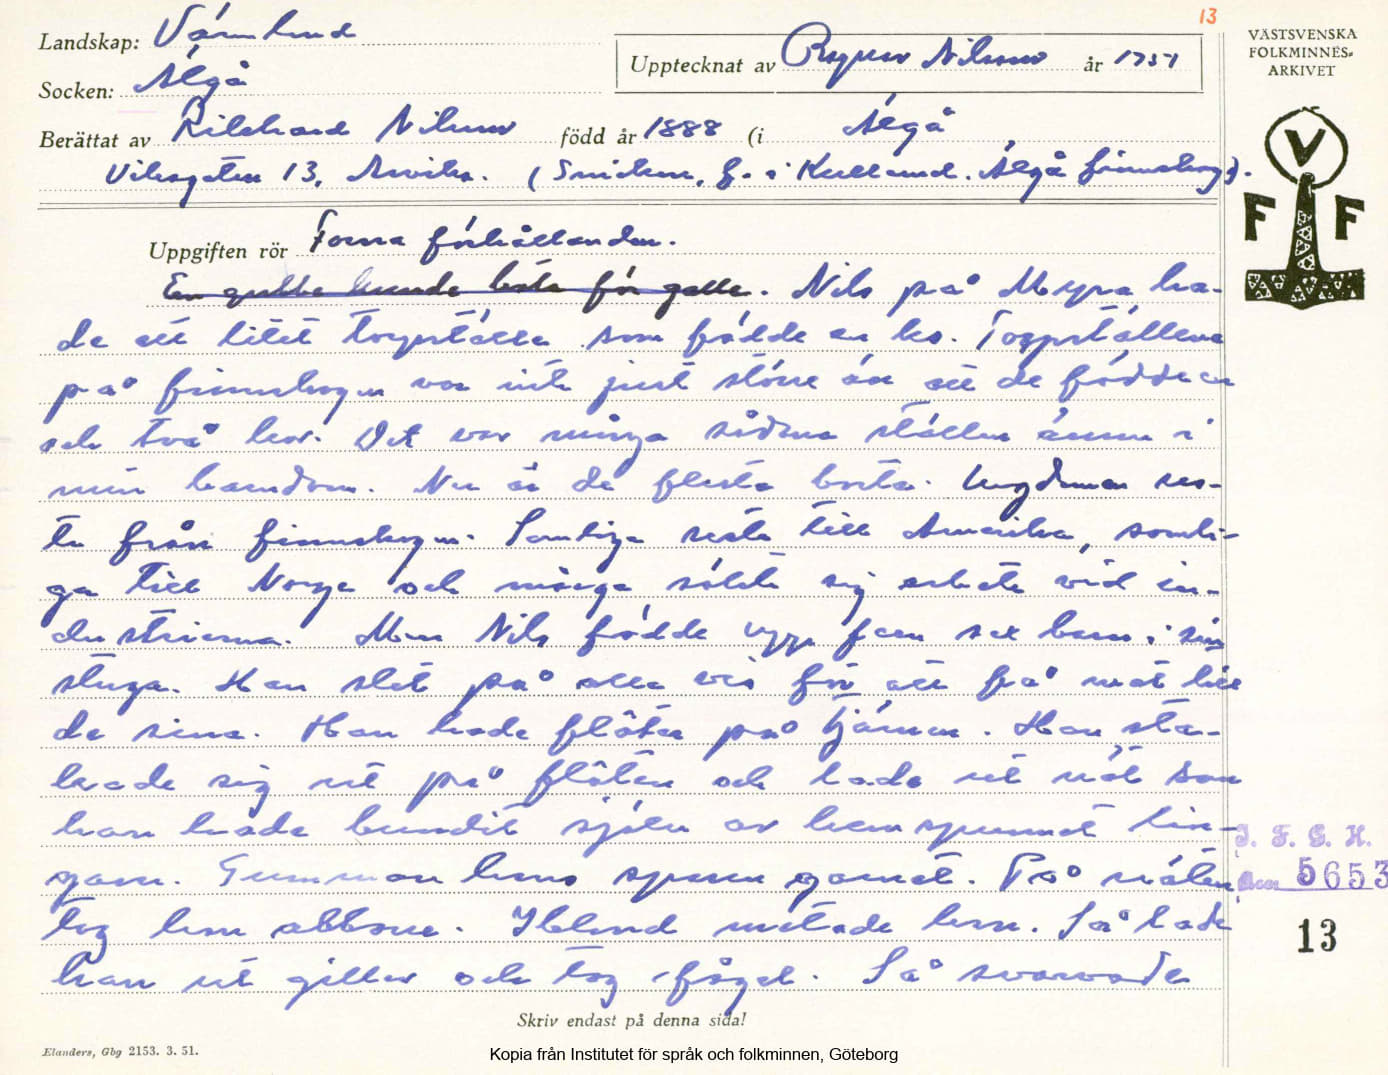 13
Landskap: Värmland
Socken: Älgå
Upptecknat av Ragnar Nilsson år 1951
VÄSTSVENSKA
FOLKMINNES-
ARKIVET
Berättat av Rikhard Nilsson född år 1888 (i Älgå
Viksgatan 13, Arvika. (Snickare, f. i Kulland. Älgå finnskog).
V
F F
Uppgiften rör Forna förhållanden.
En gubbe kunde bota för galla. Nils på Myra ha-
de ett litet torpställe som födde en ko. Torpställena
på finnskogen var inte just större än att de födde en
och två kor. Det var många sådana ställen ännu i
min barndom. Nu är de flesta borta. Ungdomen res-
te från finnskogen. Somliga reste till Amerika, somli-
ga till Norge och många sökte sig arbete vid in-
dustrierna. Men Nils födde upp fem sex barn i sin
stuga. Han slet på alla vis för att få mat till
de sina. Han hade flöten på tjärnen. Han sta-
kade sig ut på flöten och lade ut nät som
han hade bundit själv av hemspunnet lin-
garn. Gumman hans spann garnet. På näten
tog han abborre. Ibland metade han. Så lade
han ut giller och tog fågel. Så svarvade
J. F. G. H.
Acc 5653
13
Skriv endast på denna sida!
Elanders, Gbg 2153. 3. 51.
Kopia från Institutet för språk och folkminnen, Göteborg